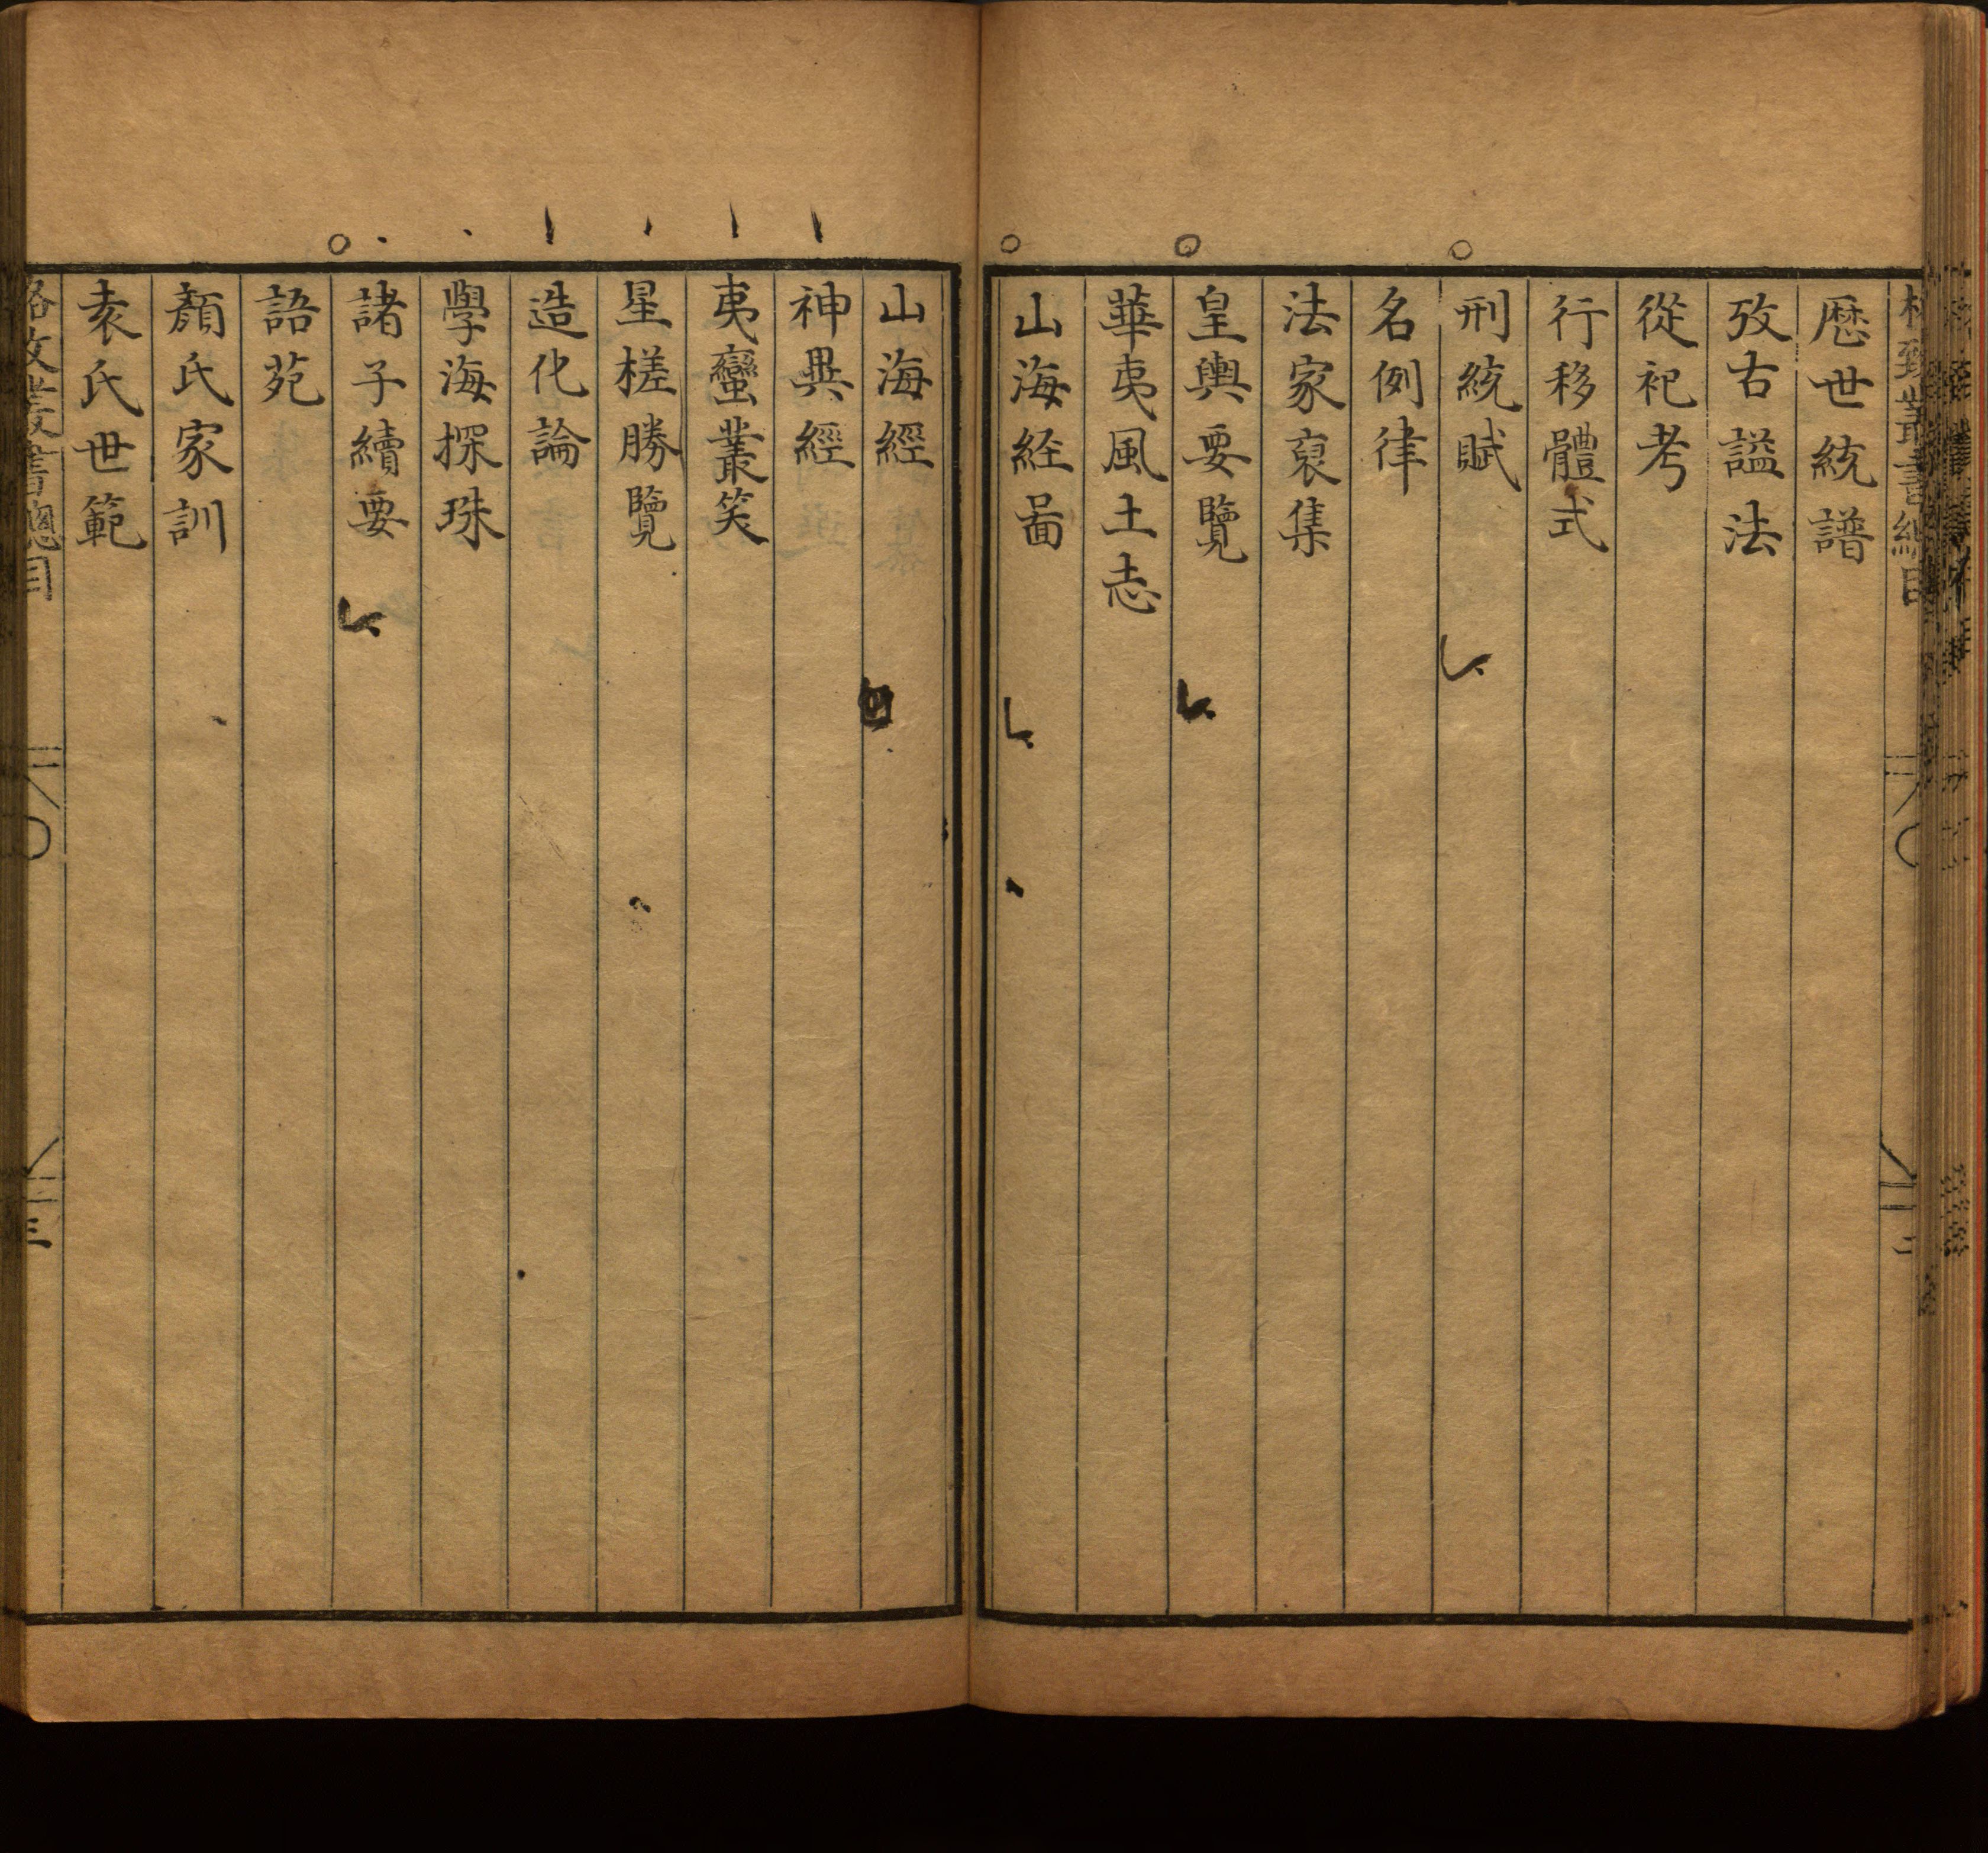 格致叢書總目
歷世統譜
攷古謚法
從祀考
行移體式
刑統賦
名例律
法家裒集
皇輿要覽
華夷風土志
山海経啚
山海經
神異經
夷蠻叢笑
星槎勝覽
造化論
學海探珠
諸子續要
語苑
顏氏家訓
袁氏世範
格致叢書總目
三